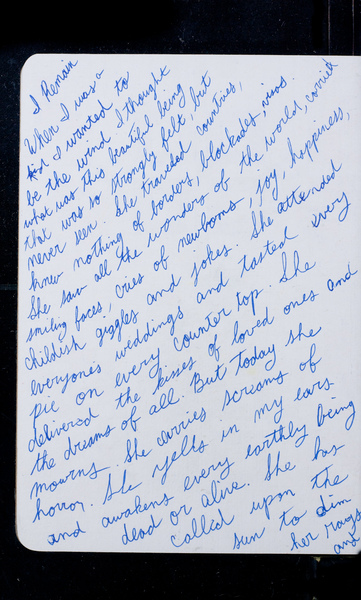 I Remain
When I was a
kid I wanted to
be the wind. I thought
what was this beautiful being
that was so strongly felt, but
never seen. She traveled countries,
knew nothing of borders, blockades, visas.
She saw all the wonders of the world, carried
smiling faces, cries of newborns, joy, happiness,
childish giggles and jokes. She attended
everyones weddings and tasted every
pie on every counter top. She
delivered the kisses of loved ones and
the dreams of all. But today she
mourns. She carries screams of
horror. She yells in my ears
and awakens every earthly being
dead or alive. She has
called upon the
sun to dim
her rays
and